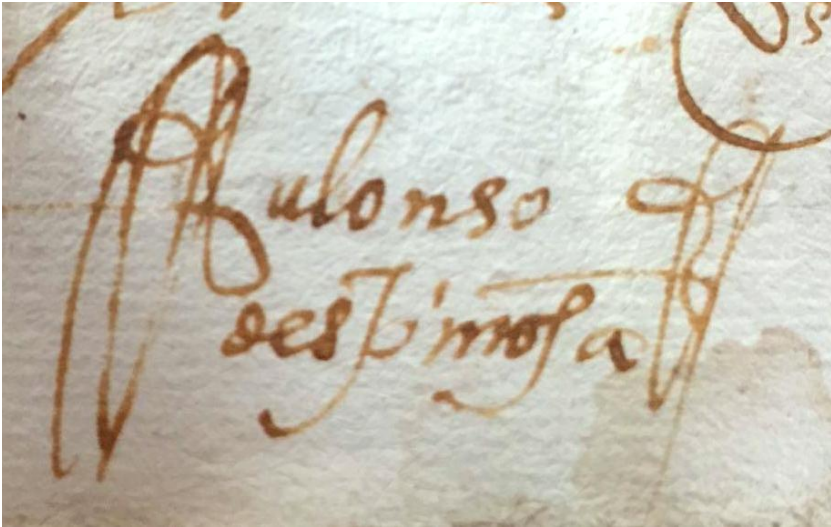 alonso
despinosa